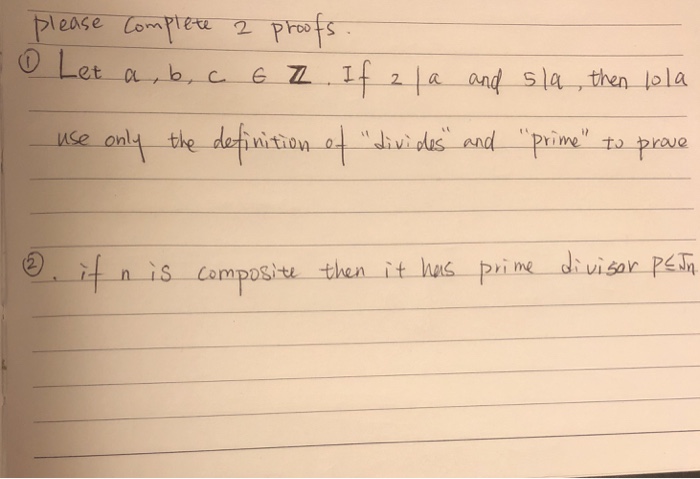 please complete 2 proofs.
① Let a, b, c ∈ ℤ. If 2|a and 5|a, then 10|a
use only the definition of "divides" and "prime" to prove
②. if n is composite then it has prime divisor P≤√n